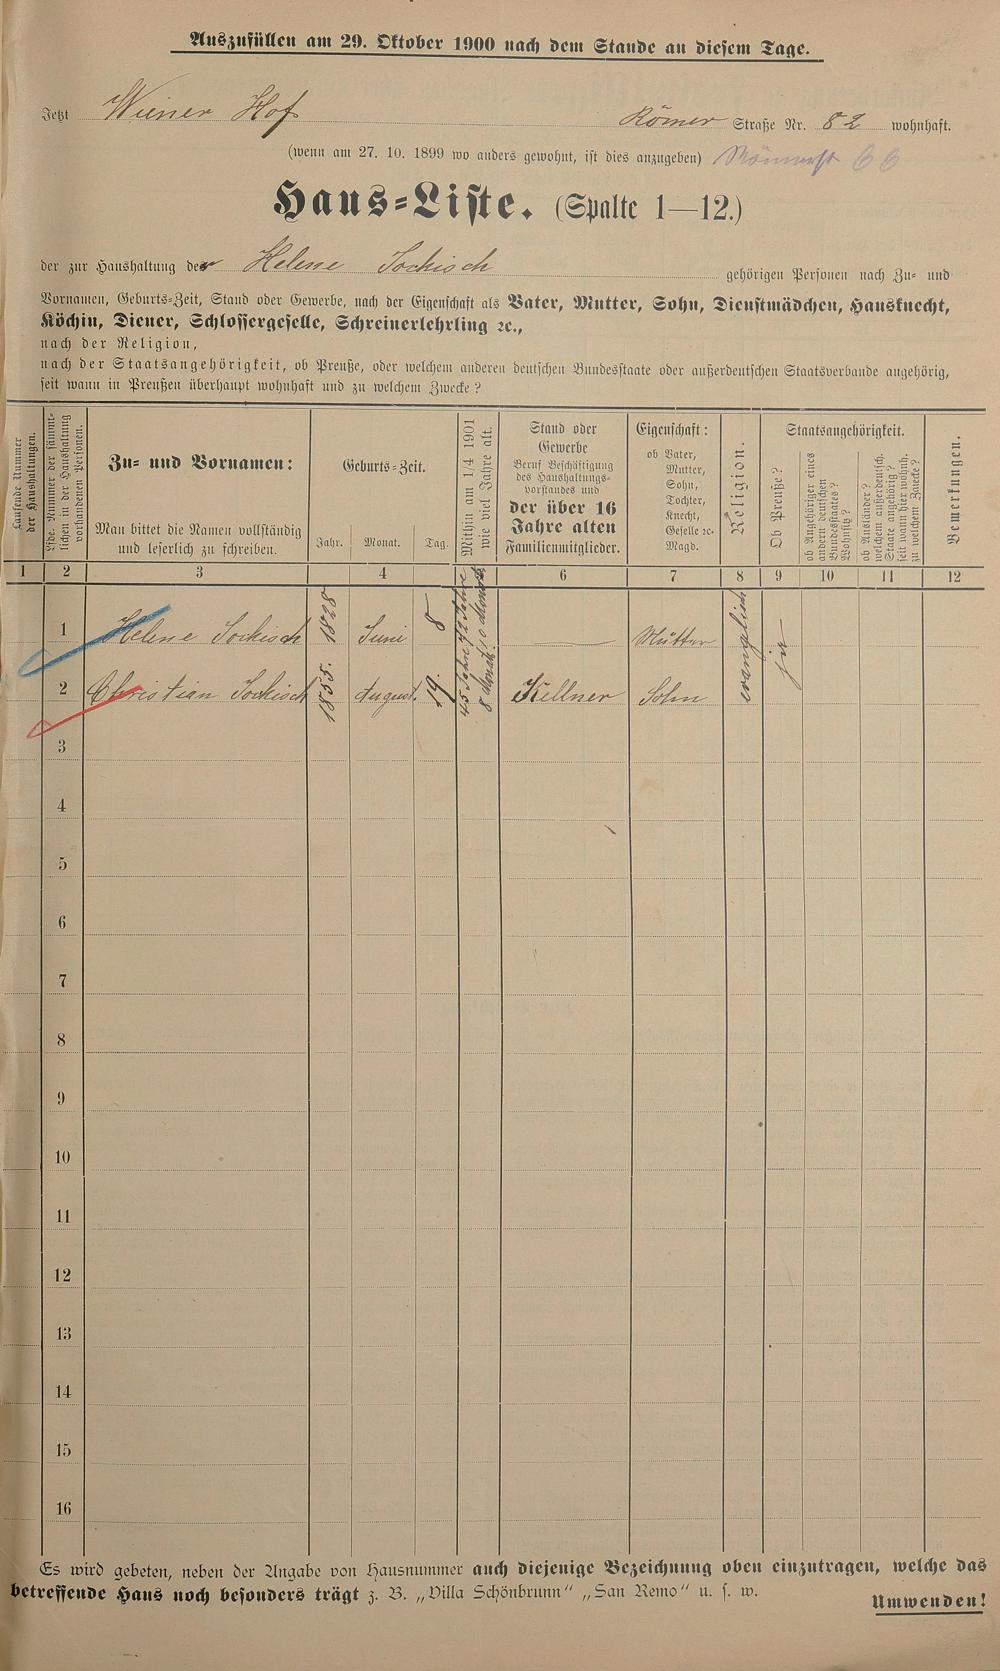 Auszufüllen am 29. Oktober 1900 nach dem Stande an diesem Tage.
Jetzt Wiener Hof Römer Straße Nr. 82 wohnhaft.
(wenn am 27. 10. 1899 wo anders gewohnt, ist dies anzugeben) 66
Haus-Liste. (Spalte 1—12.)
der zur Haushaltung der Helene Sockisch gehörigen Personen nach Zu- und
Vornamen, Geburts-Zeit, Stand oder Gewerbe, nach der Eigenschaft als Vater, Mutter, Sohn, Dienstmädchen, Hausknecht,
Köchin, Diener, Schlossergeselle, Schreinerlehrling ꝛc.,
nach der Religion,
nach der Staatsangehörigkeit, ob Preuße, oder welchem anderen deutschen Bundesstaate oder außerdeutschen Staatsverbande angehörig,
seit wann in Preußen überhaupt wohnhaft und zu welchem Zwecke?
Laufende Nummer
der Haushaltungen.
Lfde. Nummer der sämmt-
lichen in der Haushaltung
vorhandenen Personen.
Zu- und Vornamen:
Man bittet die Namen vollständig
und leserlich zu schreiben.
Geburts-Zeit.
Jahr. Monat. Tag.
Mithin am 1/4 1901
wie viel Jahre alt.
Stand oder
Gewerbe
Beruf Beschäftigung
des Haushaltungs-
vorstandes und
der über 16
Jahre alten
Familienmitglieder.
Eigenschaft:
ob Vater,
Mutter,
Sohn,
Tochter,
Knecht,
Geselle ꝛc.
Magd.
Religion.
Staatsangehörigkeit.
Ob Preuße?
ob Angehöriger eines
andern deutschen
Bundesstaates?
Wohnsitz?
ob Ausländer?
welchem außerdeutsch.
Staate angehörig?
seit wann hier wohnh.
zu welchem Zwecke?
Bemerkungen.
1 2 3 4 5 6 7 8 9 10 11 12
1 Helene Sockisch 1828 Juni 8 72 Jahre 10 Monate — Mutter evanglisch ja
2 Christian Sockisch 1855. August. 19. 45 Jahre 8 Monat. Kellner Sohn
3
4
5
6
7
8
9
10
11
12
13
14
15
16
Es wird gebeten, neben der Angabe von Hausnummer auch diejenige Bezeichnung oben einzutragen, welche das
betreffende Haus noch besonders trägt z. B. „Villa Schönbrunn“ „San Remo“ u. s. w.
Umwenden!